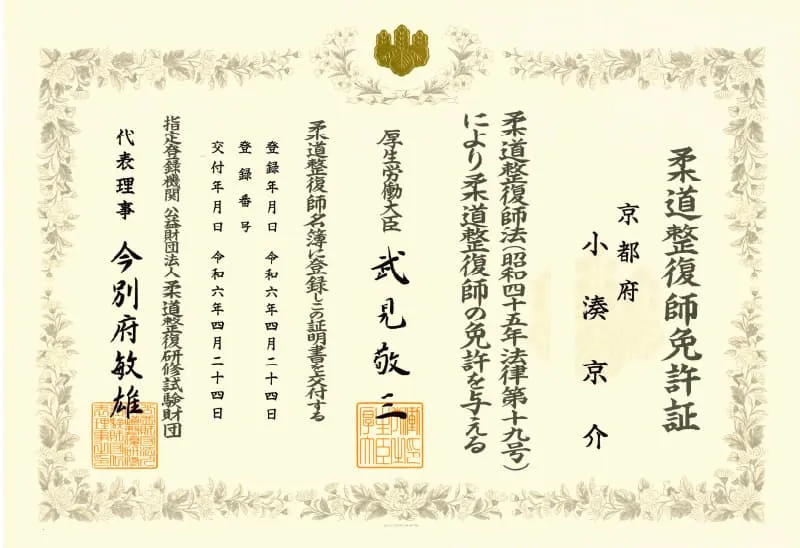 柔道整復師免許証
京都府
小湊京介
柔道整復師法(昭和四十五年法律第十九号)
により柔道整復師の免許を与える
厚生労働大臣 武見敬三
柔道整復師名簿に登録しこの証明書を交付する
登録年月日 令和六年四月二十四日
登録番号
交付年月日 令和六年四月二十四日
指定登録機関 公益財団法人柔道整復研修試験財団
代表理事 今別府敏雄